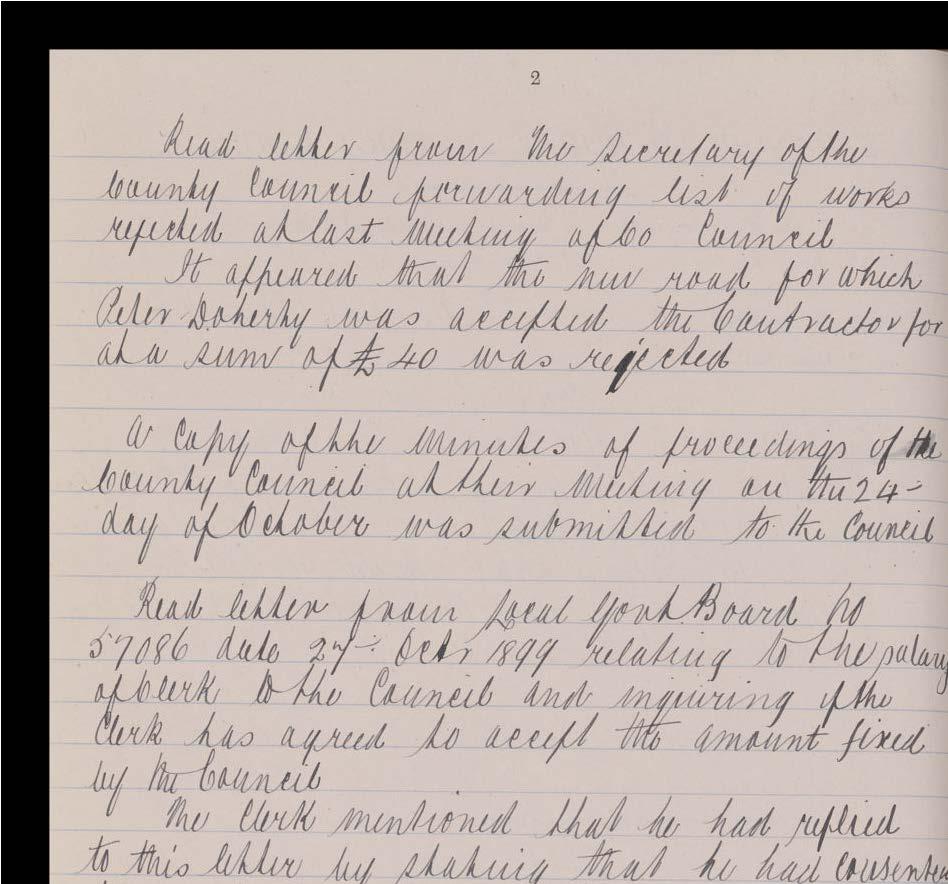 2
Read letter from the Secretary of the
County Council forwarding list of works
rejected at last Meeting of Co Council
It appeared that the new road for which
Peter Doherty was accepted the Contractor for
at a sum of £40 was rejected
A Copy of the Minutes of proceedings of the
County Council at their Meeting on the 24-
day of October was submitted to the Council
Read letter from Local Govt. Board No
57086 date 27- Octr 1899 relating to the salary
of Clerk to the Council and inquiring if the
Clerk has agreed to accept the amount fixed
by the Council
The Clerk mentioned that he had replied
to this letter by stating that he had consented